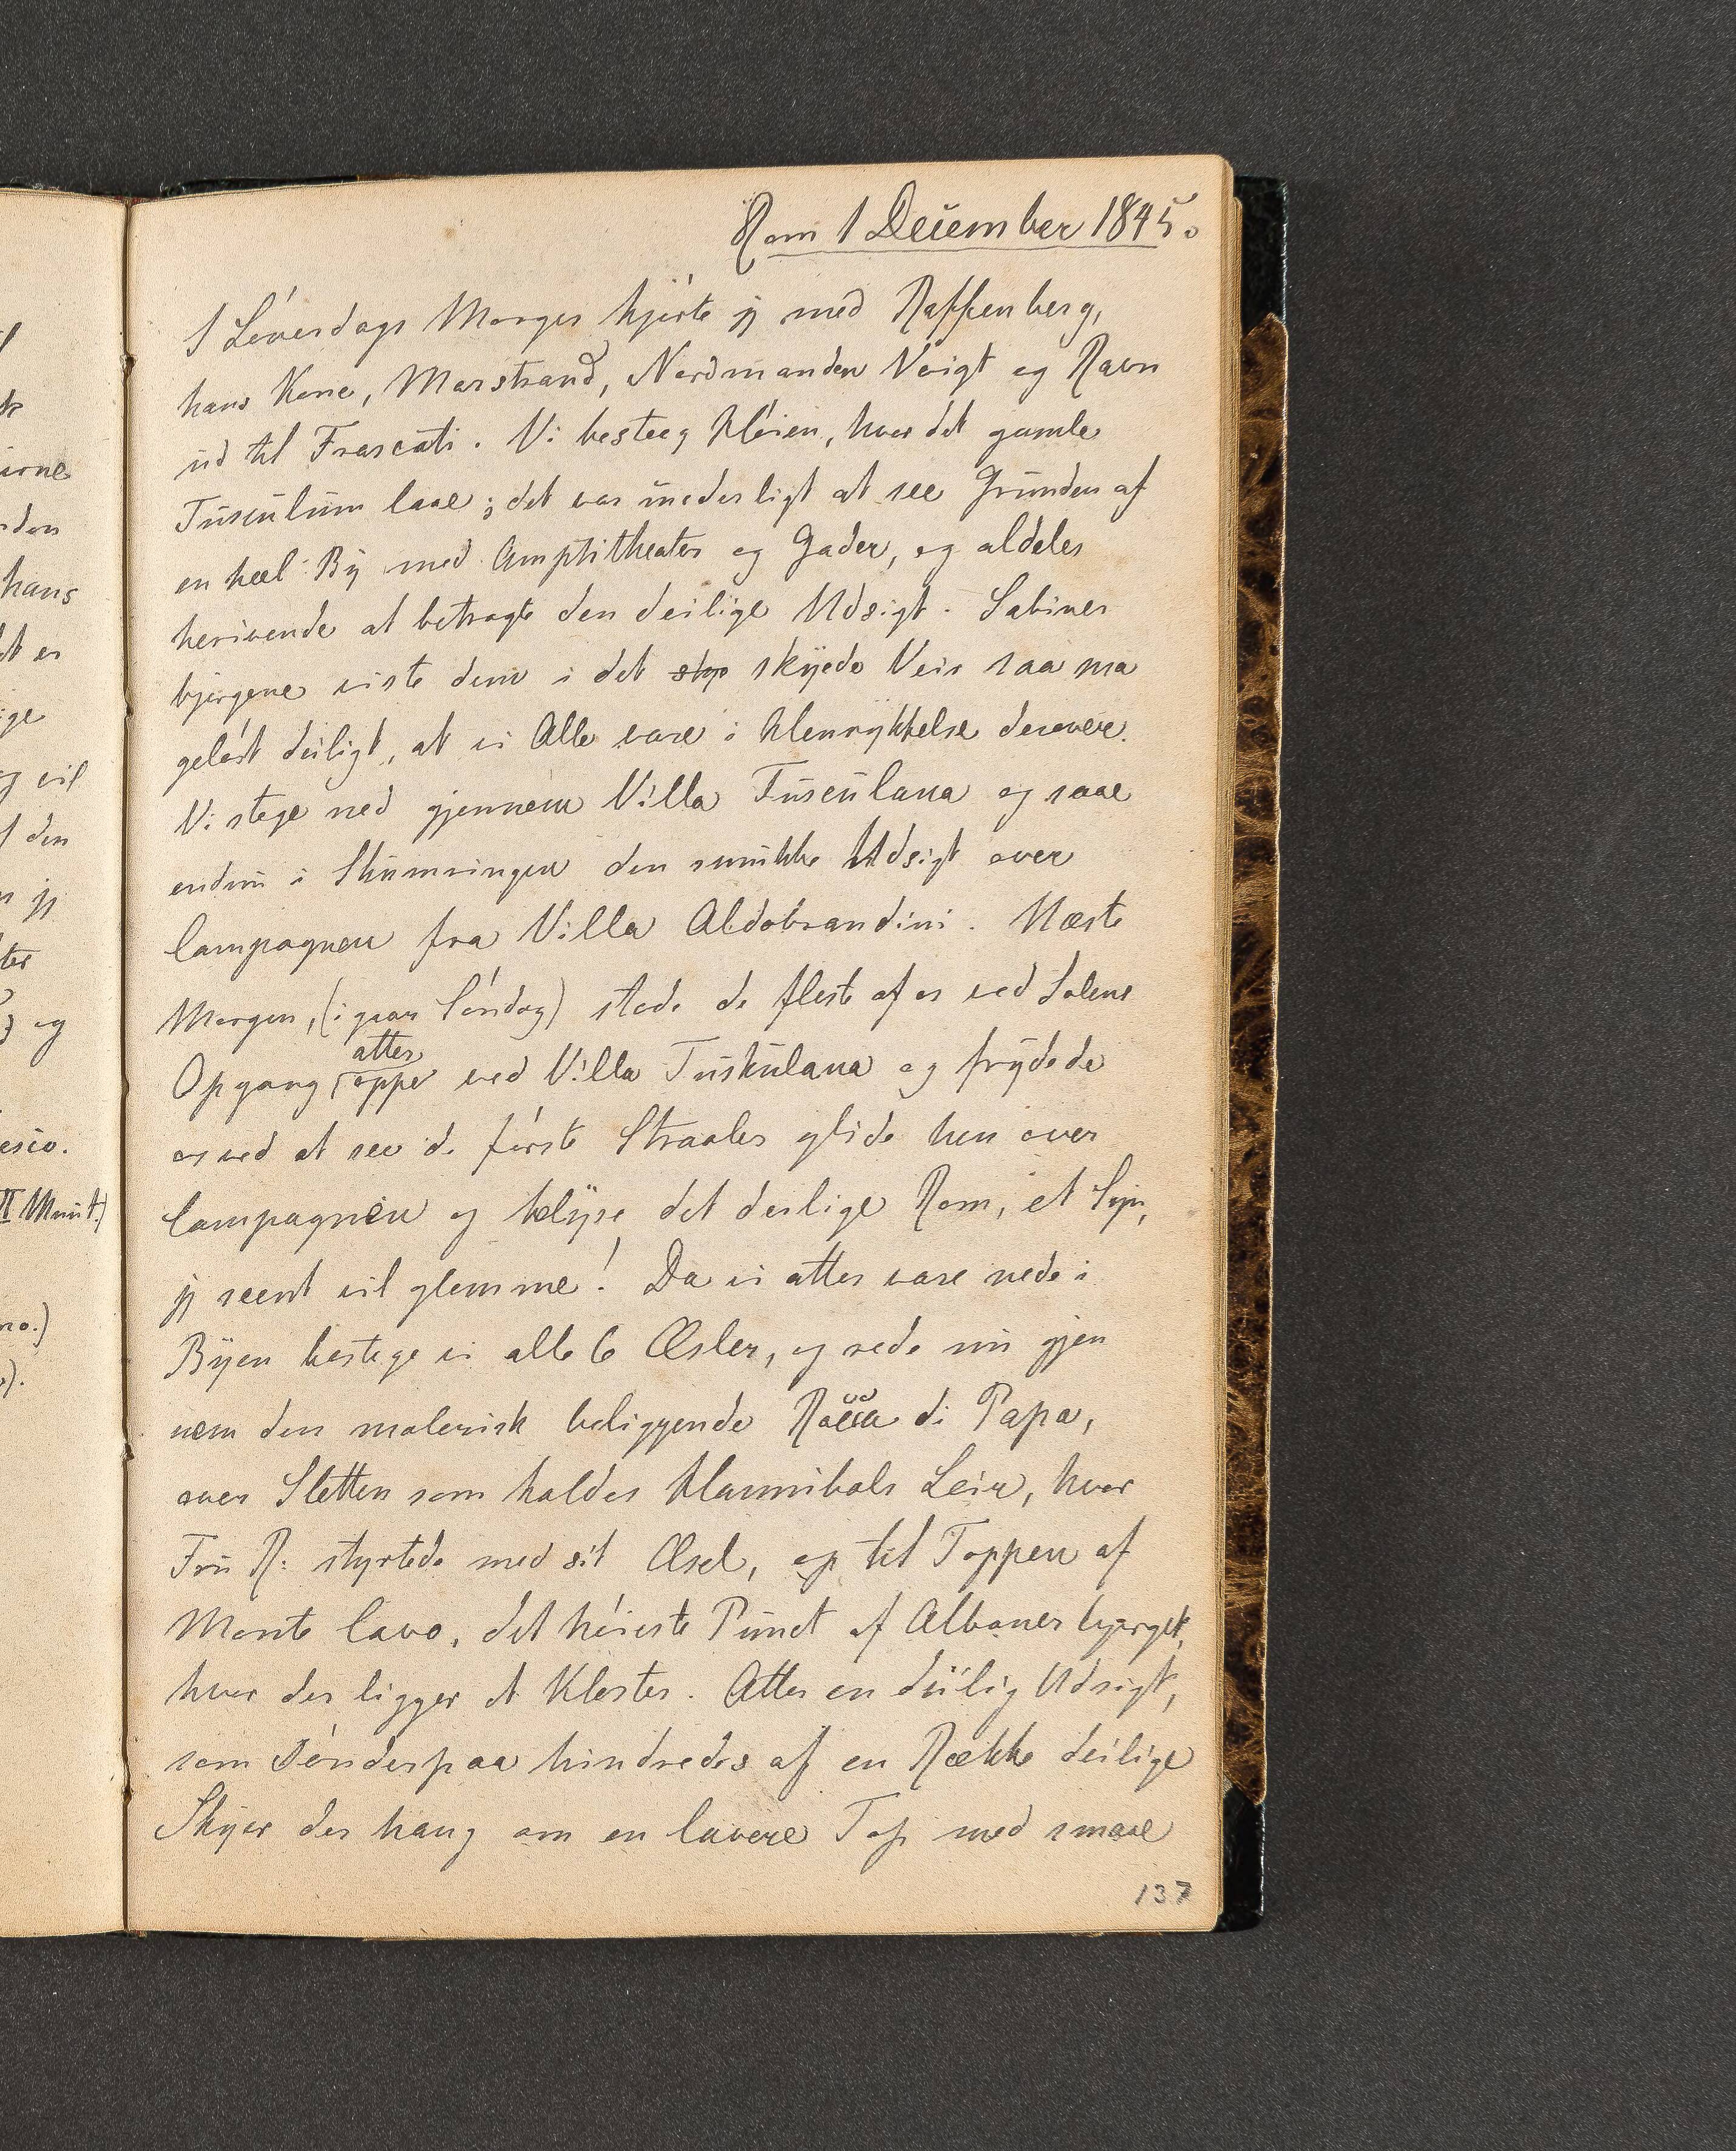 Rom 1 December 1845.
I Løverdags Morges kjørte jeg med Raffenberg,
hans Kone, Marstrand, Nordmanden Voigt og Ravn
ud til Frascati. Vi besteeg Høien, hvor det gamle
Tusculum laae; det var underligt at see Grunden af
en heel By med Amphitheater og Gader, og aldeles
henrivende at betragte den deilige Udsigt. Sabiner
bjergene viste dem i det skyede Veir saa ma
geløst deiligt, at vi Alle vare i Henrykkelse derover.
Vi stege ned gjennem Villa Tusculana og saae
endnu i Skumringen den smukke Udsigt over
Campagnen fra Villa Aldobrandini. Næste
Morgen, (igaar Søndag) stode de fleste af os ved Solens
Opgang atter oppe ved Villa Tuskulana og frydede
os ved at see de første Straaler glide hen over
Campagnen og belyse det deilige Rom, et Syn,
jeg seent vil glemme! Da vi atter vare nede i
Byen bestege vi alle 6 Æsler, og rede nu gjen
nem den malerisk beliggende Rocca di Papa,
over Sletten som kaldes Hannibals Leir, hvor
Fru R: styrtede med sit Æsel, op til Toppen af
Monte Cavo, det høieste Punct af Albanerbjerget,
hvor der ligger et Kloster. Atter en deilig Udsigt,
som Sønderpaa hindredes af en Række deilige
Skyer der hang om en lavere Top med smaae
137
hans
og vil
den
jeg
og